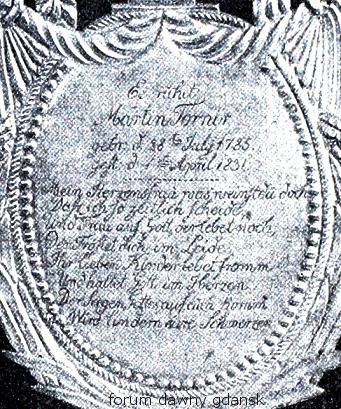 Es ruhet,
Martin Tornir
gebr. d 28th July 1785
gest. d 1th April 1831.
Mein Herzensfrau was weinst du doch
Daß ich so zeitlich scheide,
auf Gott er lebet noch,
Der tröstet dich im Leide
Ihr lieben Kinder lebet fromm
Und haltet Gott im Herzen
Der Segen Gottes auf euch komm
Wird lindern eure Schmerzen
forum dawny gdansk